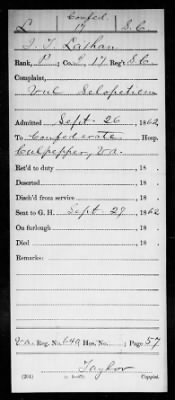 Confed.
L 17 S.C.
J. T. Lathan
Rank, P; Co. I, 17 Reg't S.C.
Complaint,
Vul Sclopeticum
Admitted Sept. 26, 1862
To Confederate Hosp.
Culpepper, Va.
Ret'd to duty , 18 .
Deserted , 18 .
Disch'd from service , 18 .
Sent to G. H. Sept. 29, 1862
On furlough , 18 .
Died , 18 .
Remarks:
Va. Reg. No. 649 Hos. No. ; Page 57
Taylor
Copyist.